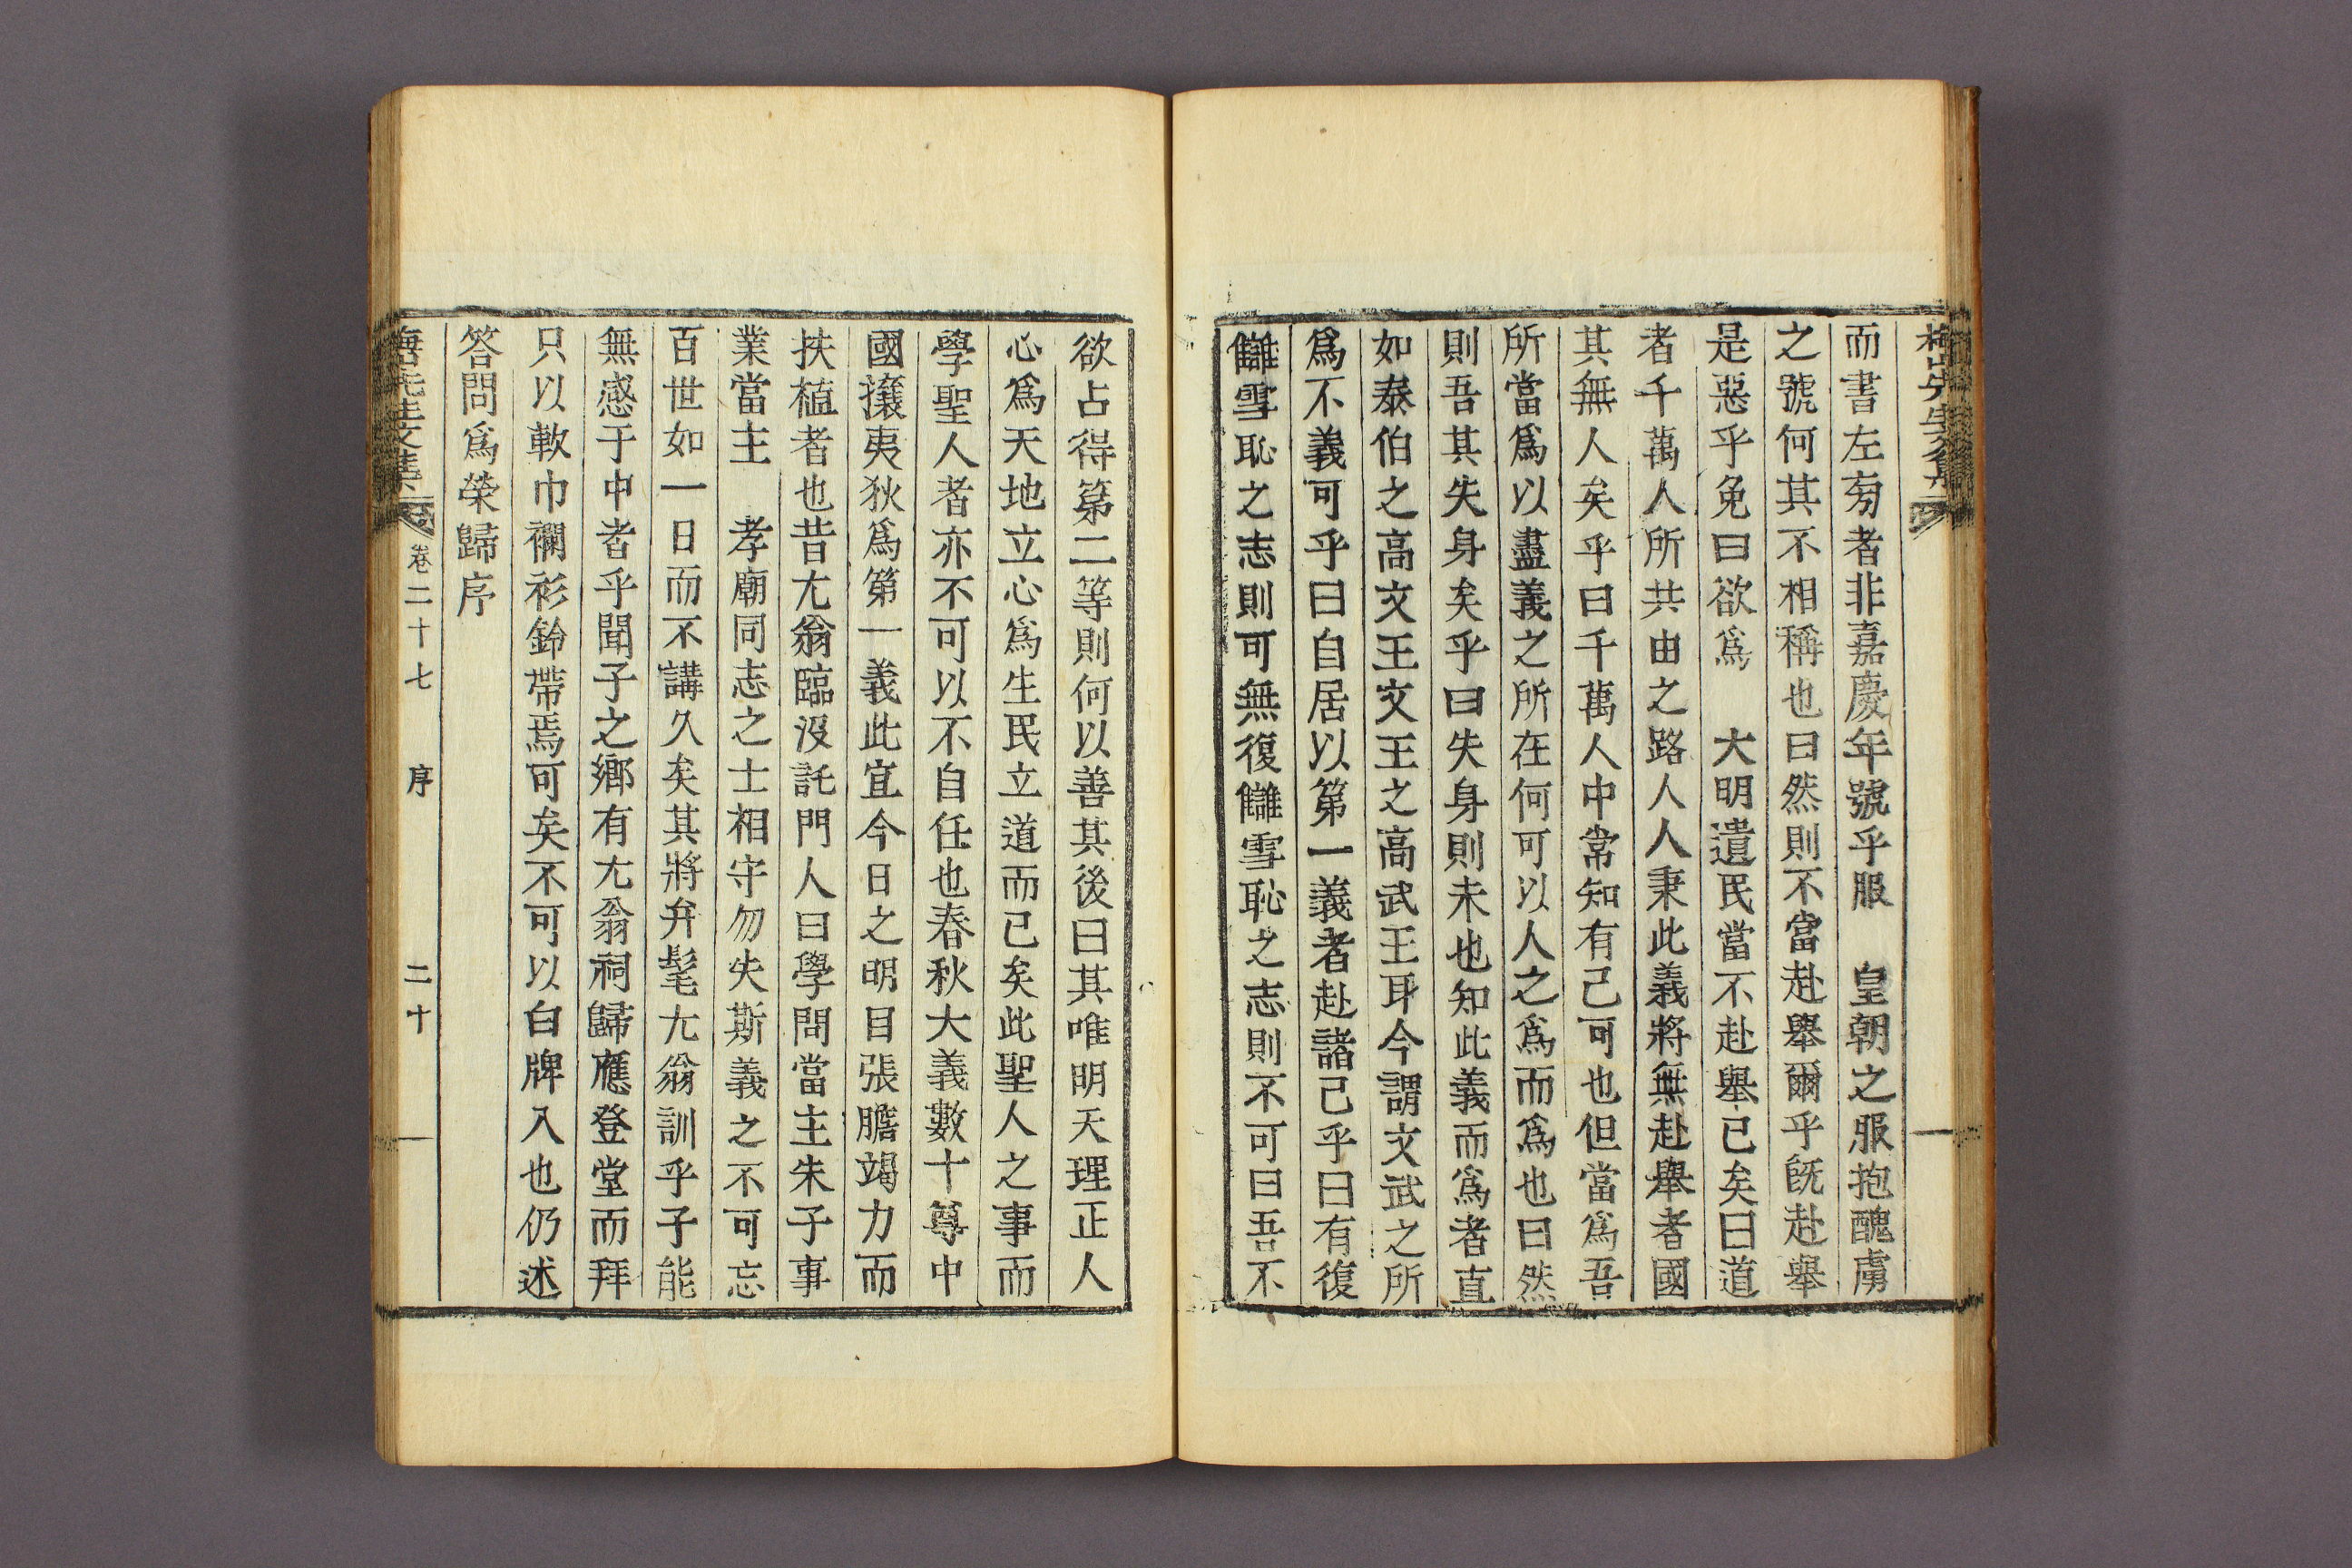 而書左旁者非嘉慶年號乎服　皇朝之服抱醜虜
之號何其不相稱也曰然則不當赴擧爾乎旣赴擧
是惡乎免曰欲爲　大明遺民當不赴擧已矣曰道
者千萬人所共由之路人人秉此義將無赴擧者國
其無人矣乎曰千萬人中常知有己可也但當爲吾
所當爲以盡義之所在何可以人之爲而爲也曰然
則吾其失身矣乎曰失身則未也知此義而爲者直
如泰伯之高文王文王之高武王耳今謂文武之所
爲不義可乎曰自居以第一義者赴諸己乎曰有復
讎雪恥之志則可無復讎雪恥之志則不可曰吾不
欲占得第二等則何以善其後曰其唯明天理正人
心爲天地立心爲生民立道而已矣此聖人之事而
學聖人者亦不可以不自任也春秋大義數十尊中
國攘夷狄爲第一義此宜今日之明目張膽竭力而
扶植者也昔尤翁臨沒託門人曰學問當主朱子事
業當主　孝廟同志之士相守勿失斯義之不可忘
百世如一日而不講久矣其將弁髦尤翁訓乎子能
無感于中者乎聞子之鄕有尤翁祠歸應登堂而拜
只以軟巾襴衫鈴帶焉可矣不可以白牌入也仍述
答問爲榮歸序
卷二十七　序　二十